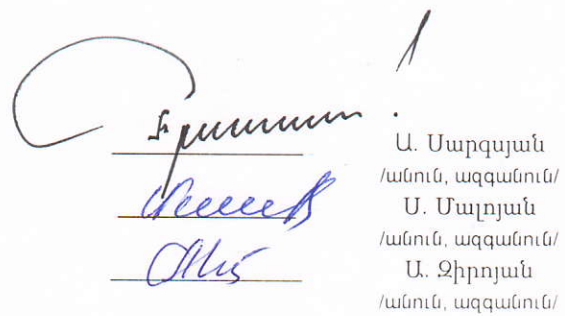 Ա. Սարգսյան
/անուն, ազգանուն/
Ս. Մալոյան
/անուն, ազգանուն/
Ա. Չիրոյան
/անուն, ազգանուն/